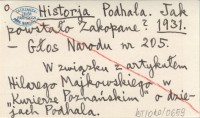 o Historja Podhala. Jak
powstało Zakopane? 1931.
— Głos Narodu nr 205.
W związku z artykułem
Hilarego Majkowskiego w
„Kurierze Poznańskim" o dzie-
jach Podhala.